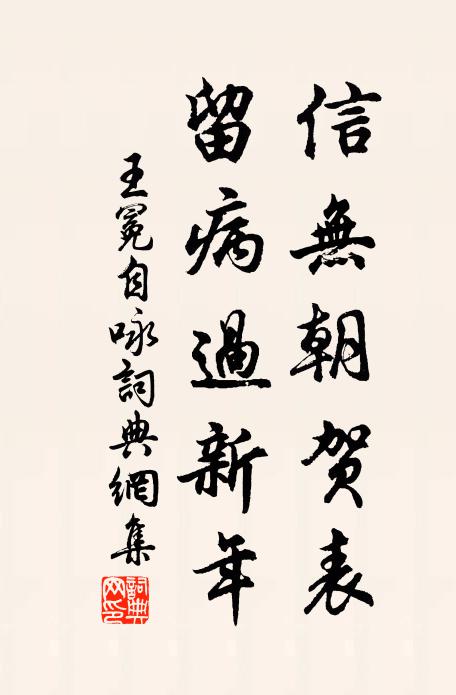 信無朝賀表
留病過新年
王冕自咏詞典網集
詞典網印